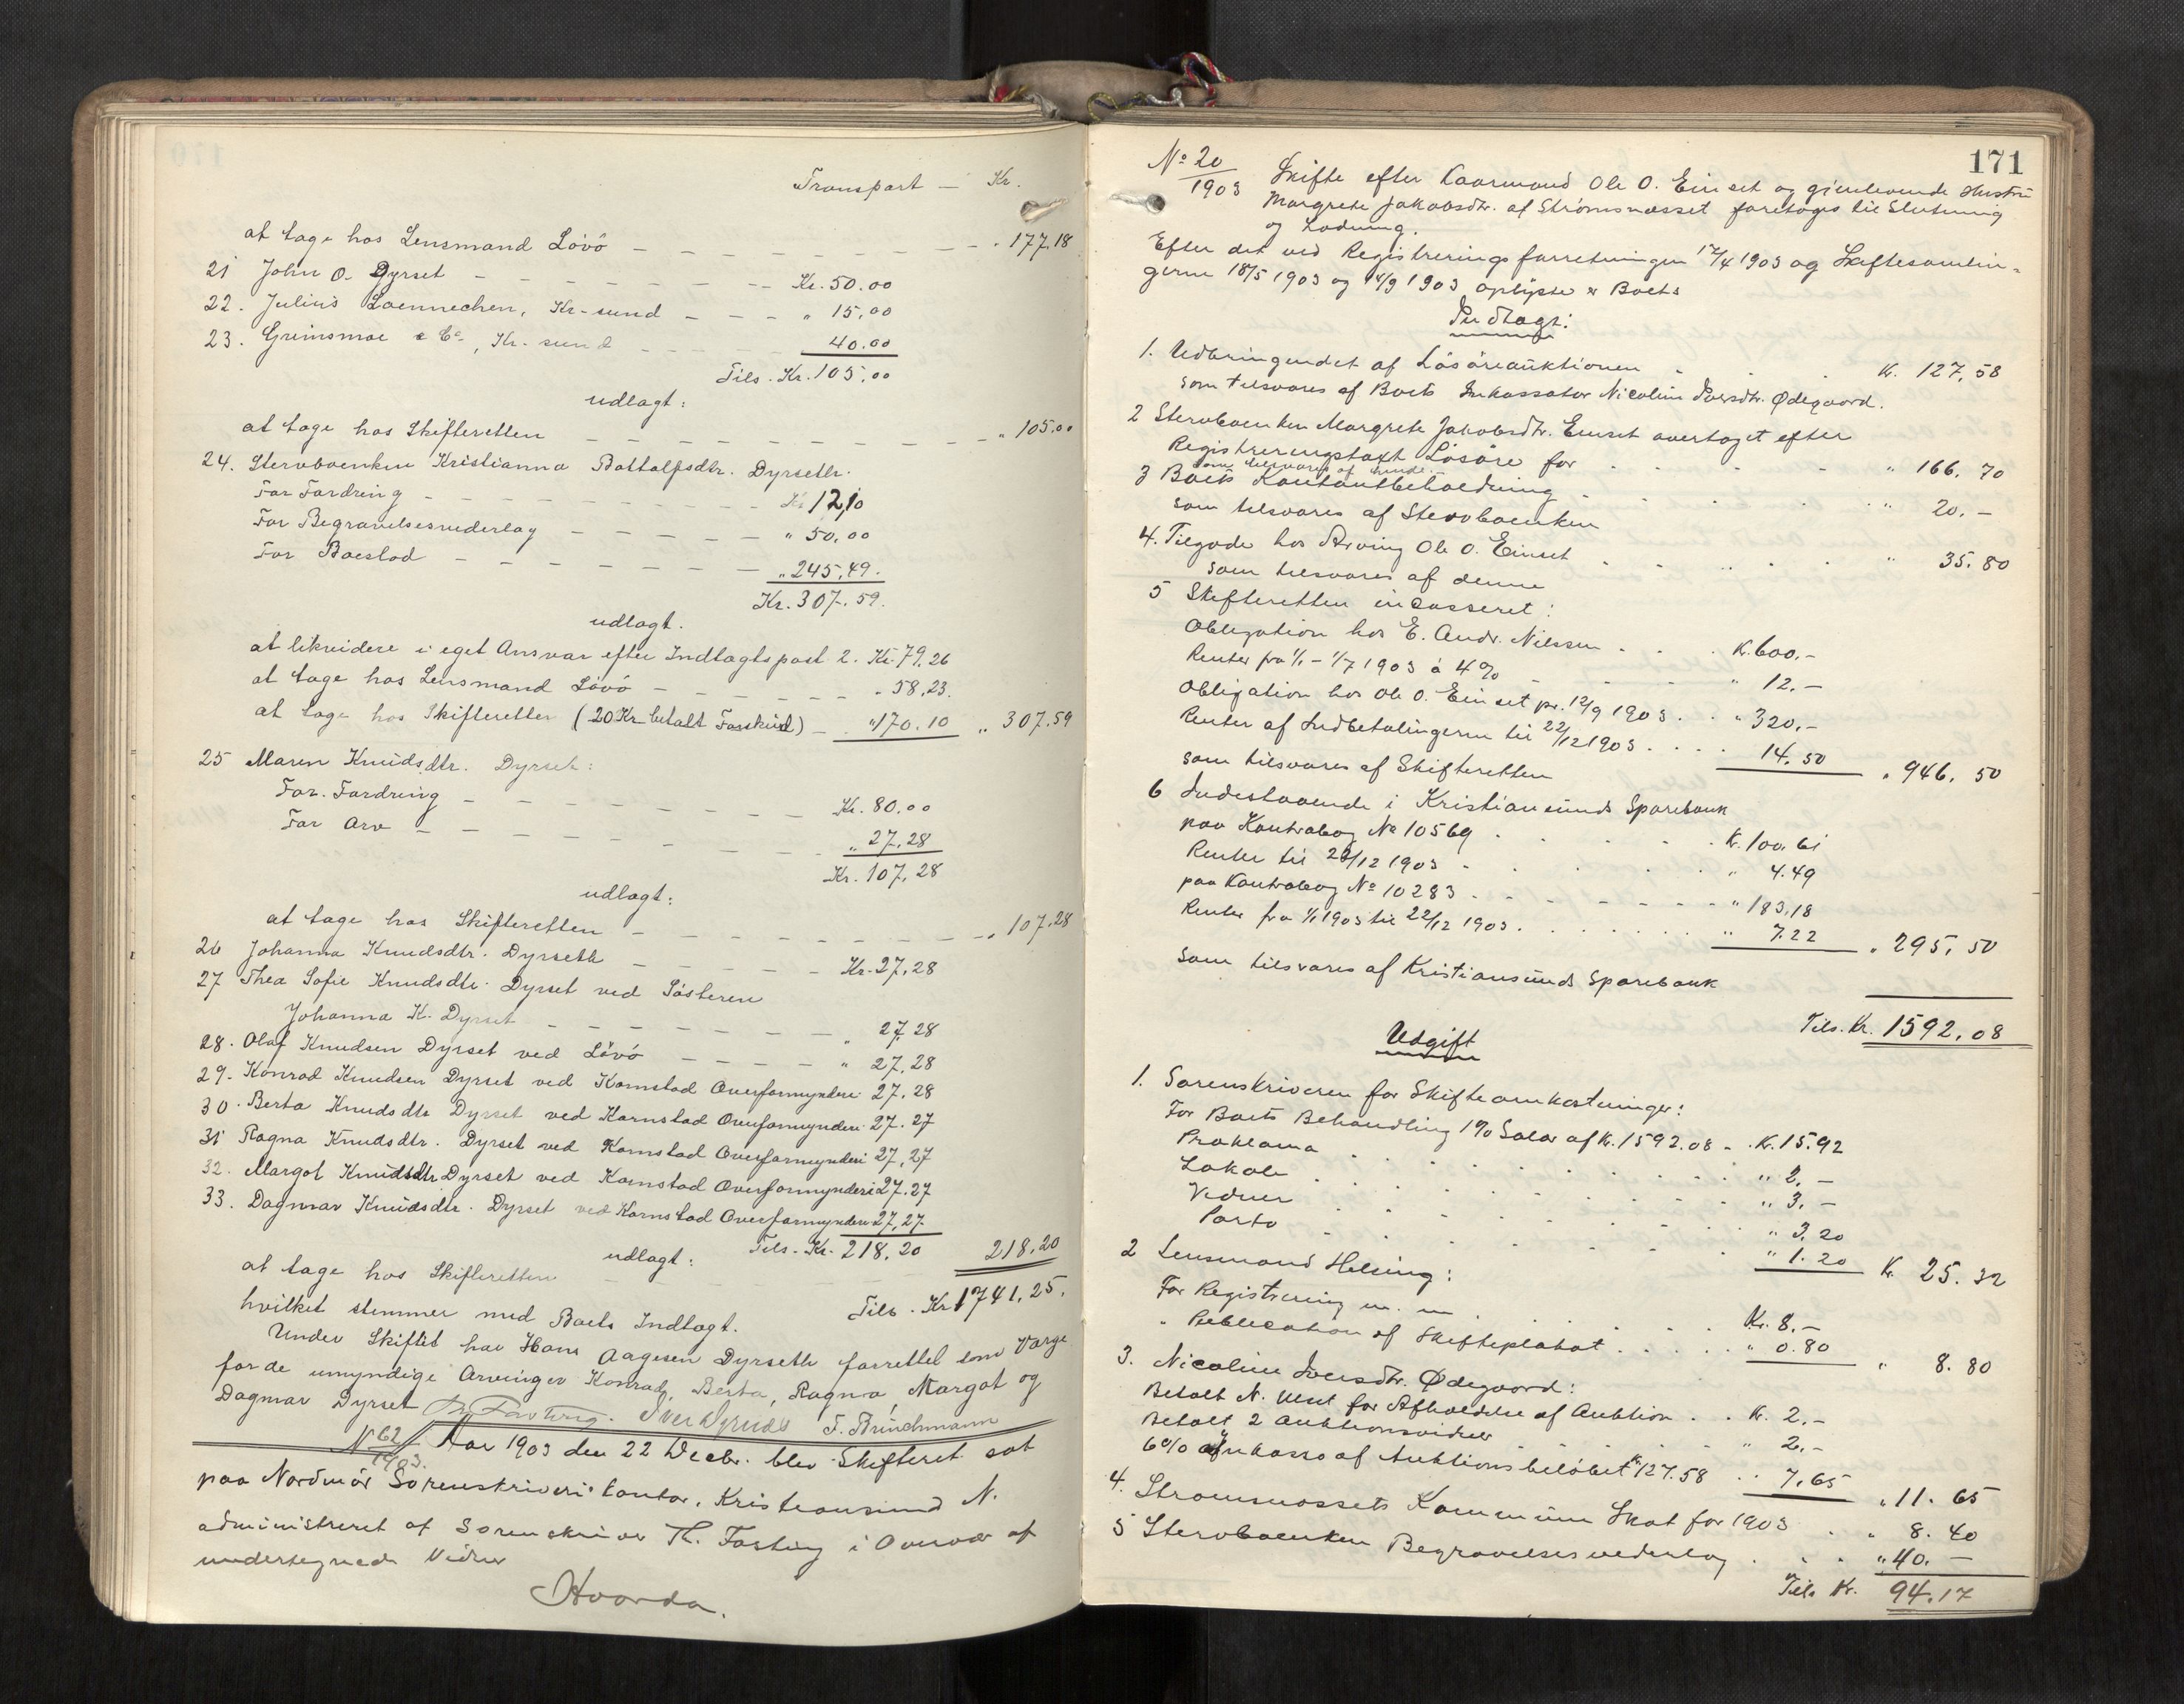 Transport — Kr.
at tage hos Lensmand Lövö — — — — — — — — " 177.18
21 John O. Dyrset — — — — — — Kr. 50.00
22. Julius Loennechen, Kr-sund — — — " 15,00
23. Grimsmoe & Co, Kr.-sund — — — 40.00
Tils. Kr. 105,00
udlagt:
at tage hos Skifteretten — — — — — — — — — — " 105.00
24. Stervboenken Kristianna Bottolfsdtr. Dyrseth.
For Fordring — — — — — — — — Kr 12,10
For Begravelsesvederlag — — — — — " 50,00
For Boeslod — — — — — — — " 245,49.
Kr. 307.59.
udlagt.
at likvidere i eget Ansvar efter Indtægtspost 2. Kr. 79,26
at tage hos Lensmand Lövö — — — — — — " 58,23.
at tage hos Skifteretten (20 Kr betalt Forskud) — " 170.10 " 307.59
25 Maren Knudsdtr. Dyrset:
For Fordring — — — — — — — — Kr. 80.00
For Arv — — — — — — — — " 27,28
Kr. 107,28
udlagt:
at tage hos Skifteretten — — — — — — — — — " 107.28
26 Johanna Knudsdtr. Dyrseth — — — — — Kr. 27,28
27 Thea Sofie Knudsdtr. Dyrset ved Sösteren
Johanna K. Dyrset — — — — — — — " 27,28
28. Olaf Knudsen Dyrset ved Lövö — — — — " 27,28
29. Konrad Knudsen Dyrset ved Kornstad Overformynderi 27,28
30. Berta Knudsdtr Dyrset ved Kornstad Overformynderi 27.27
31 Ragna Knudsdtr. Dyrset ved Kornstad Overformynderi 27,27
32. Margot Knudsdtr Dyrset ved Kornstad Overformynderi 27.27
33. Dagmar Knudsdtr. Dyrset ved Kornstad Overformynderi 27,27
udlagt: Tils. Kr. 218.20
at tage hos Skifteretten — — — 218.20
hvilket stemmer med Boets Indtægt. Tils. Kr 1741.25.
Under Skiftet har Hans Aagesen Dyrseth forrettet som Værge
for de umyndige Arvinger Konrad, Berta, Ragna, Margot og
Dagmar Dyrset Th. Fasting. F. Brinchmann
N 62/1903. Aar 1903 den 22 Decbr. blev Skifteret sat
paa Nordmör Sorenskriveri kontor, Kristiansund N.
administreret af Sorenskriver Th. Fasting i Overvær af
undertegnede Vidner
Hvorda.
171
No 20/1903 Skifte efter Kaarmand Ole O. Einset og gjenlevende Hustru
Margrete Jakobsdtr. af Strömsnæsset foretages til Slutning
og Lodning.
Efter det ved Registreringsforretningen 17/4 1903 og Skiftesamlin-
gerne 18/5 1903 og 14/9 1903 oplyste er Boets
Indtægt:
1. Udbringendet af Lösöreauktionen . . . K. 127,58
som tilsvares af Boets Inkassator Nicoline Iversdtr. Ødegaard.
2 Stervboenken Margrete Jakobsdtr. Einset overtaget efter
Registreringstaxt Lösöre for . . . . " 166. 70
som tilsvares af hende.
3 Boets Kontantbeholdning . . . . . " 20. —
som tilsvares af Stervboenken
4. Tilgode hos Arving Ole O. Einset . . . . . " 35. 80
som tilsvares af denne
5 Skifteretten incasseret:
Obligation hos E. Andr. Nilssen . . . K. 600.—
Renter fra 1/1 – 1/7 1903 à 4% . . . " 12.—
Obligation hos Ole O. Einset pr. 12/9 1903 . . " 320,—
Renter af Indbetalingerne til 22/12 1903 . . . . 14.50
som tilsvares af Skifteretten " 946. 50
6 Indestaaende i Kristiansunds Sparebank
paa Kontrabog No 10569 . . . . K. 100.61
Renter til 22/12 1903 . . . . . " 4.49
paa Kontrabog No 10283 . . . . . " 183,18
Renter fra 1/1 1903 til 22/12 1903 . . . . . " 7.22 " 295, 50
som tilsvares af Kristiansunds Sparebank
Tils. Kr. 1592.08
Udgift
1. Sorenskriveren for Skifteomkostninger:
For Boets Behandling 1% Salær af K. 1592.08 – . K. 15.92
Proklama . . . . . . " 2.—
Lokale . . . . . . " 3.—
Vidner . . . . . . " 3.20
Porto . . . . . . " 1.20 K. 25. 32
2 Lensmand Helsing:
For Registrering m. m . . . . Kr. 8.—
" Publication af Skifteplakat . . . . . " 0.80 " 8. 80
3. Nicoline Iversdtr. Ødegaard:
Betalt N. Unset for Afholdelse af Auktion . . K. 2,—
Betalt 2 Auktionsvidner . . . " 2,—
6% Inkasso af Auktionsbelöbet K. 127.58 . . 7.65 " 11. 65
4. Strømsnæssets Kommune Skat for 1903 . . " 8. 40
5 Stervboenken Begravelsesvederlag . . . . " 40. —
Tils. Kr. 94.17